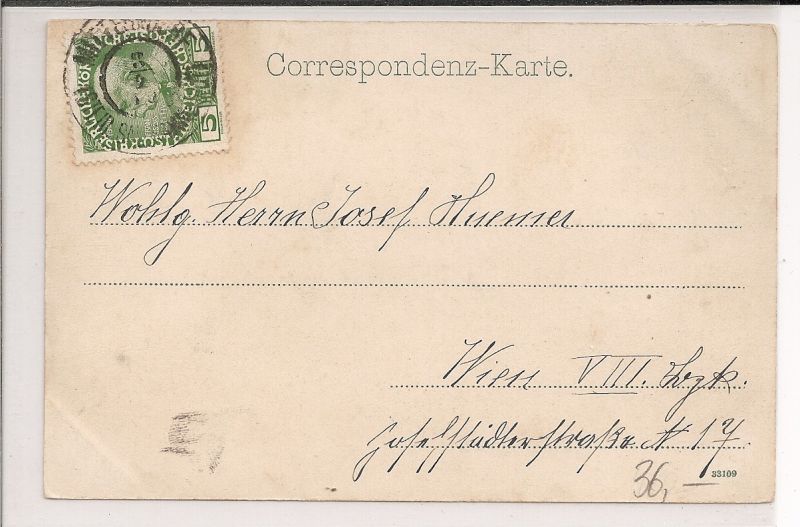 Correspondenz-Karte.
5 5
Wohlg. Herrn Josef Huemer
Wien VIII. Bzk.
Josefstädterstraße N. 17.
33109
36,—